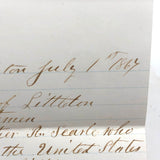 ton July 1st 1867
of Littleton
men
R. Searle who
the United States